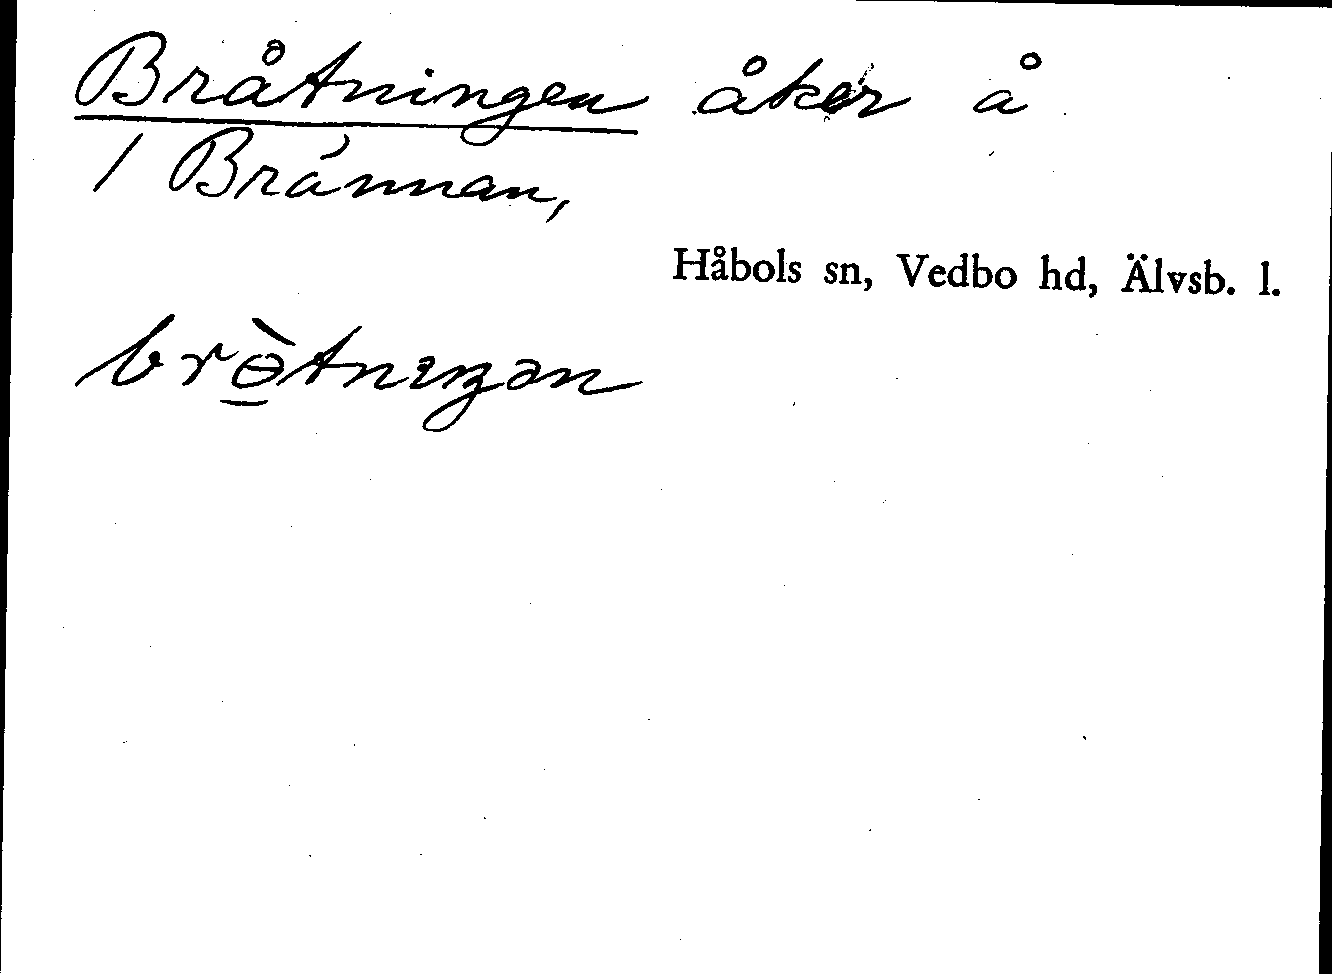 Bråtningen åker å
/ Brännan,
Håbols sn, Vedbo hd, Älvsb. l.
brɵ̠̀tnıŋən